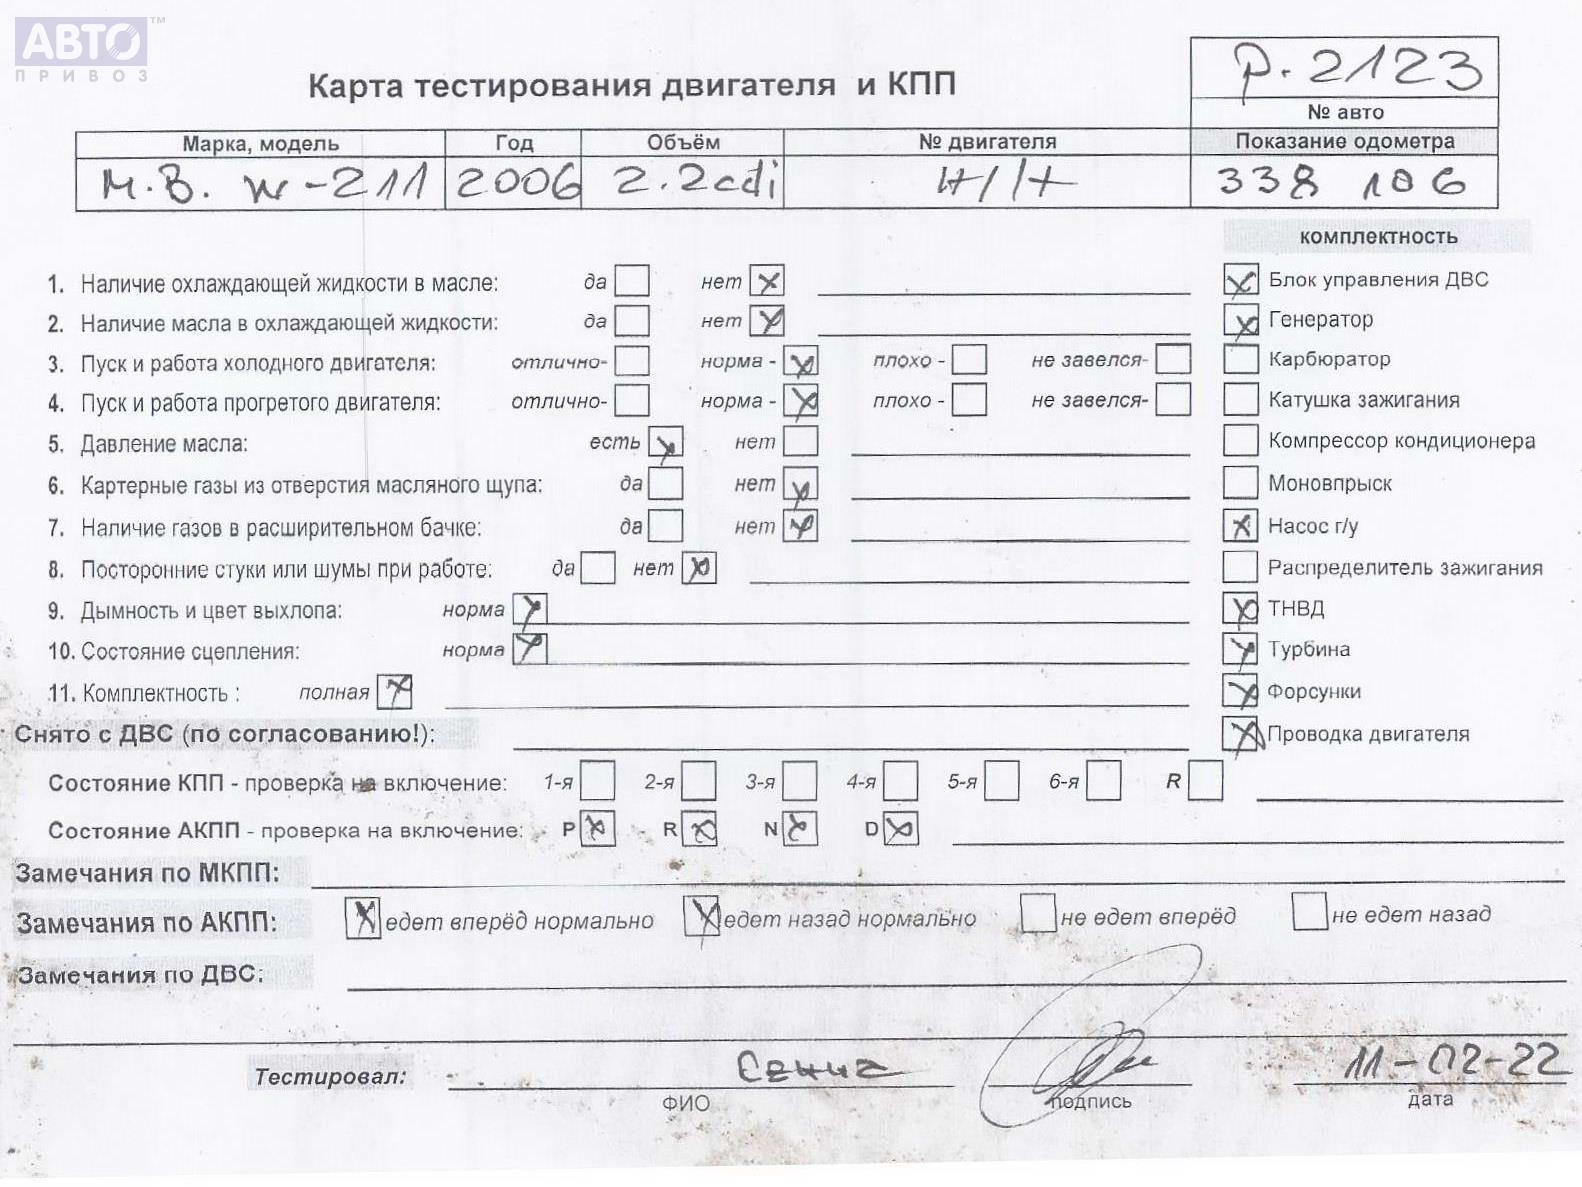 АВТО™
ПРИВОЗ
Р-2123
Карта тестирования двигателя и КПП
№ авто
Марка, модель Год Объём № двигателя Показание одометра
М.В. w-211 2006 2.2cdi Н/Н 338 106
комплектность
1. Наличие охлаждающей жидкости в масле: да нет Блок управления ДВС
2. Наличие масла в охлаждающей жидкости: да нет Генератор
3. Пуск и работа холодного двигателя: отлично- норма - плохо - не завелся- Карбюратор
4. Пуск и работа прогретого двигателя: отлично- норма - плохо - не завелся- Катушка зажигания
5. Давление масла: есть нет Компрессор кондиционера
6. Картерные газы из отверстия масляного щупа: да нет Моновпрыск
7. Наличие газов в расширительном бачке: да нет Насос г/у
8. Посторонние стуки или шумы при работе: да нет Распределитель зажигания
9. Дымность и цвет выхлопа: норма ТНВД
10. Состояние сцепления: норма Турбина
11. Комплектность : полная Форсунки
Снято с ДВС (по согласованию!): Проводка двигателя
Состояние КПП - проверка на включение: 1-я 2-я 3-я 4-я 5-я 6-я R
Состояние АКПП - проверка на включение: P R N D
Замечания по МКПП:
Замечания по АКПП: едет вперёд нормально едет назад нормально не едет вперёд не едет назад
Замечания по ДВС:
Тестировал: 11-02-22
ФИО подпись дата